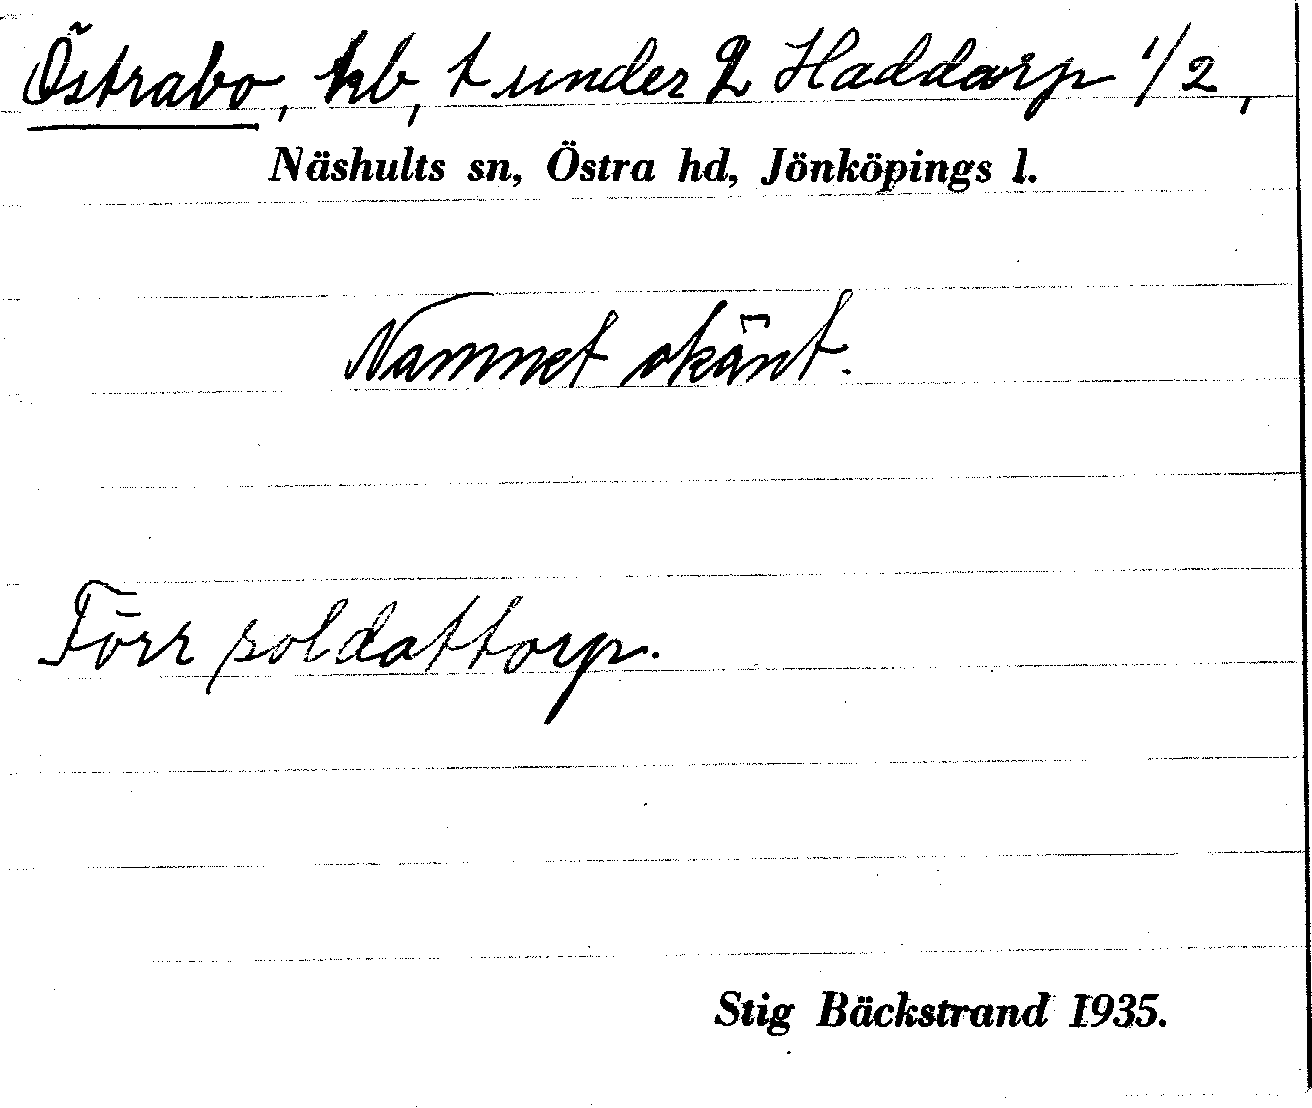 Östrabo, kb, t under 2 Haddarp 1/2,
Näshults sn, Östra hd, Jönköpings l.
Namnet okänt.
Förr soldattorp.
Stig Bäckstrand 1935.